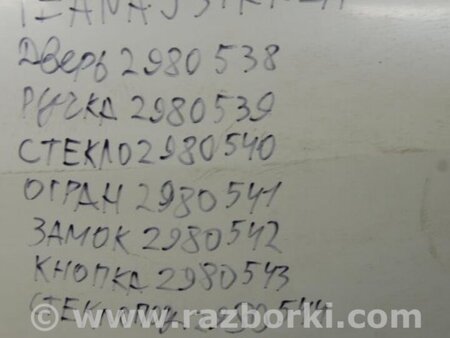 Дверь 2980538
РУЧКА 2980539
СТЕКЛО 2980540
ОГРАН 2980541
ЗАМОК 2980542
КНОПКА 2980543
www.razborki.com